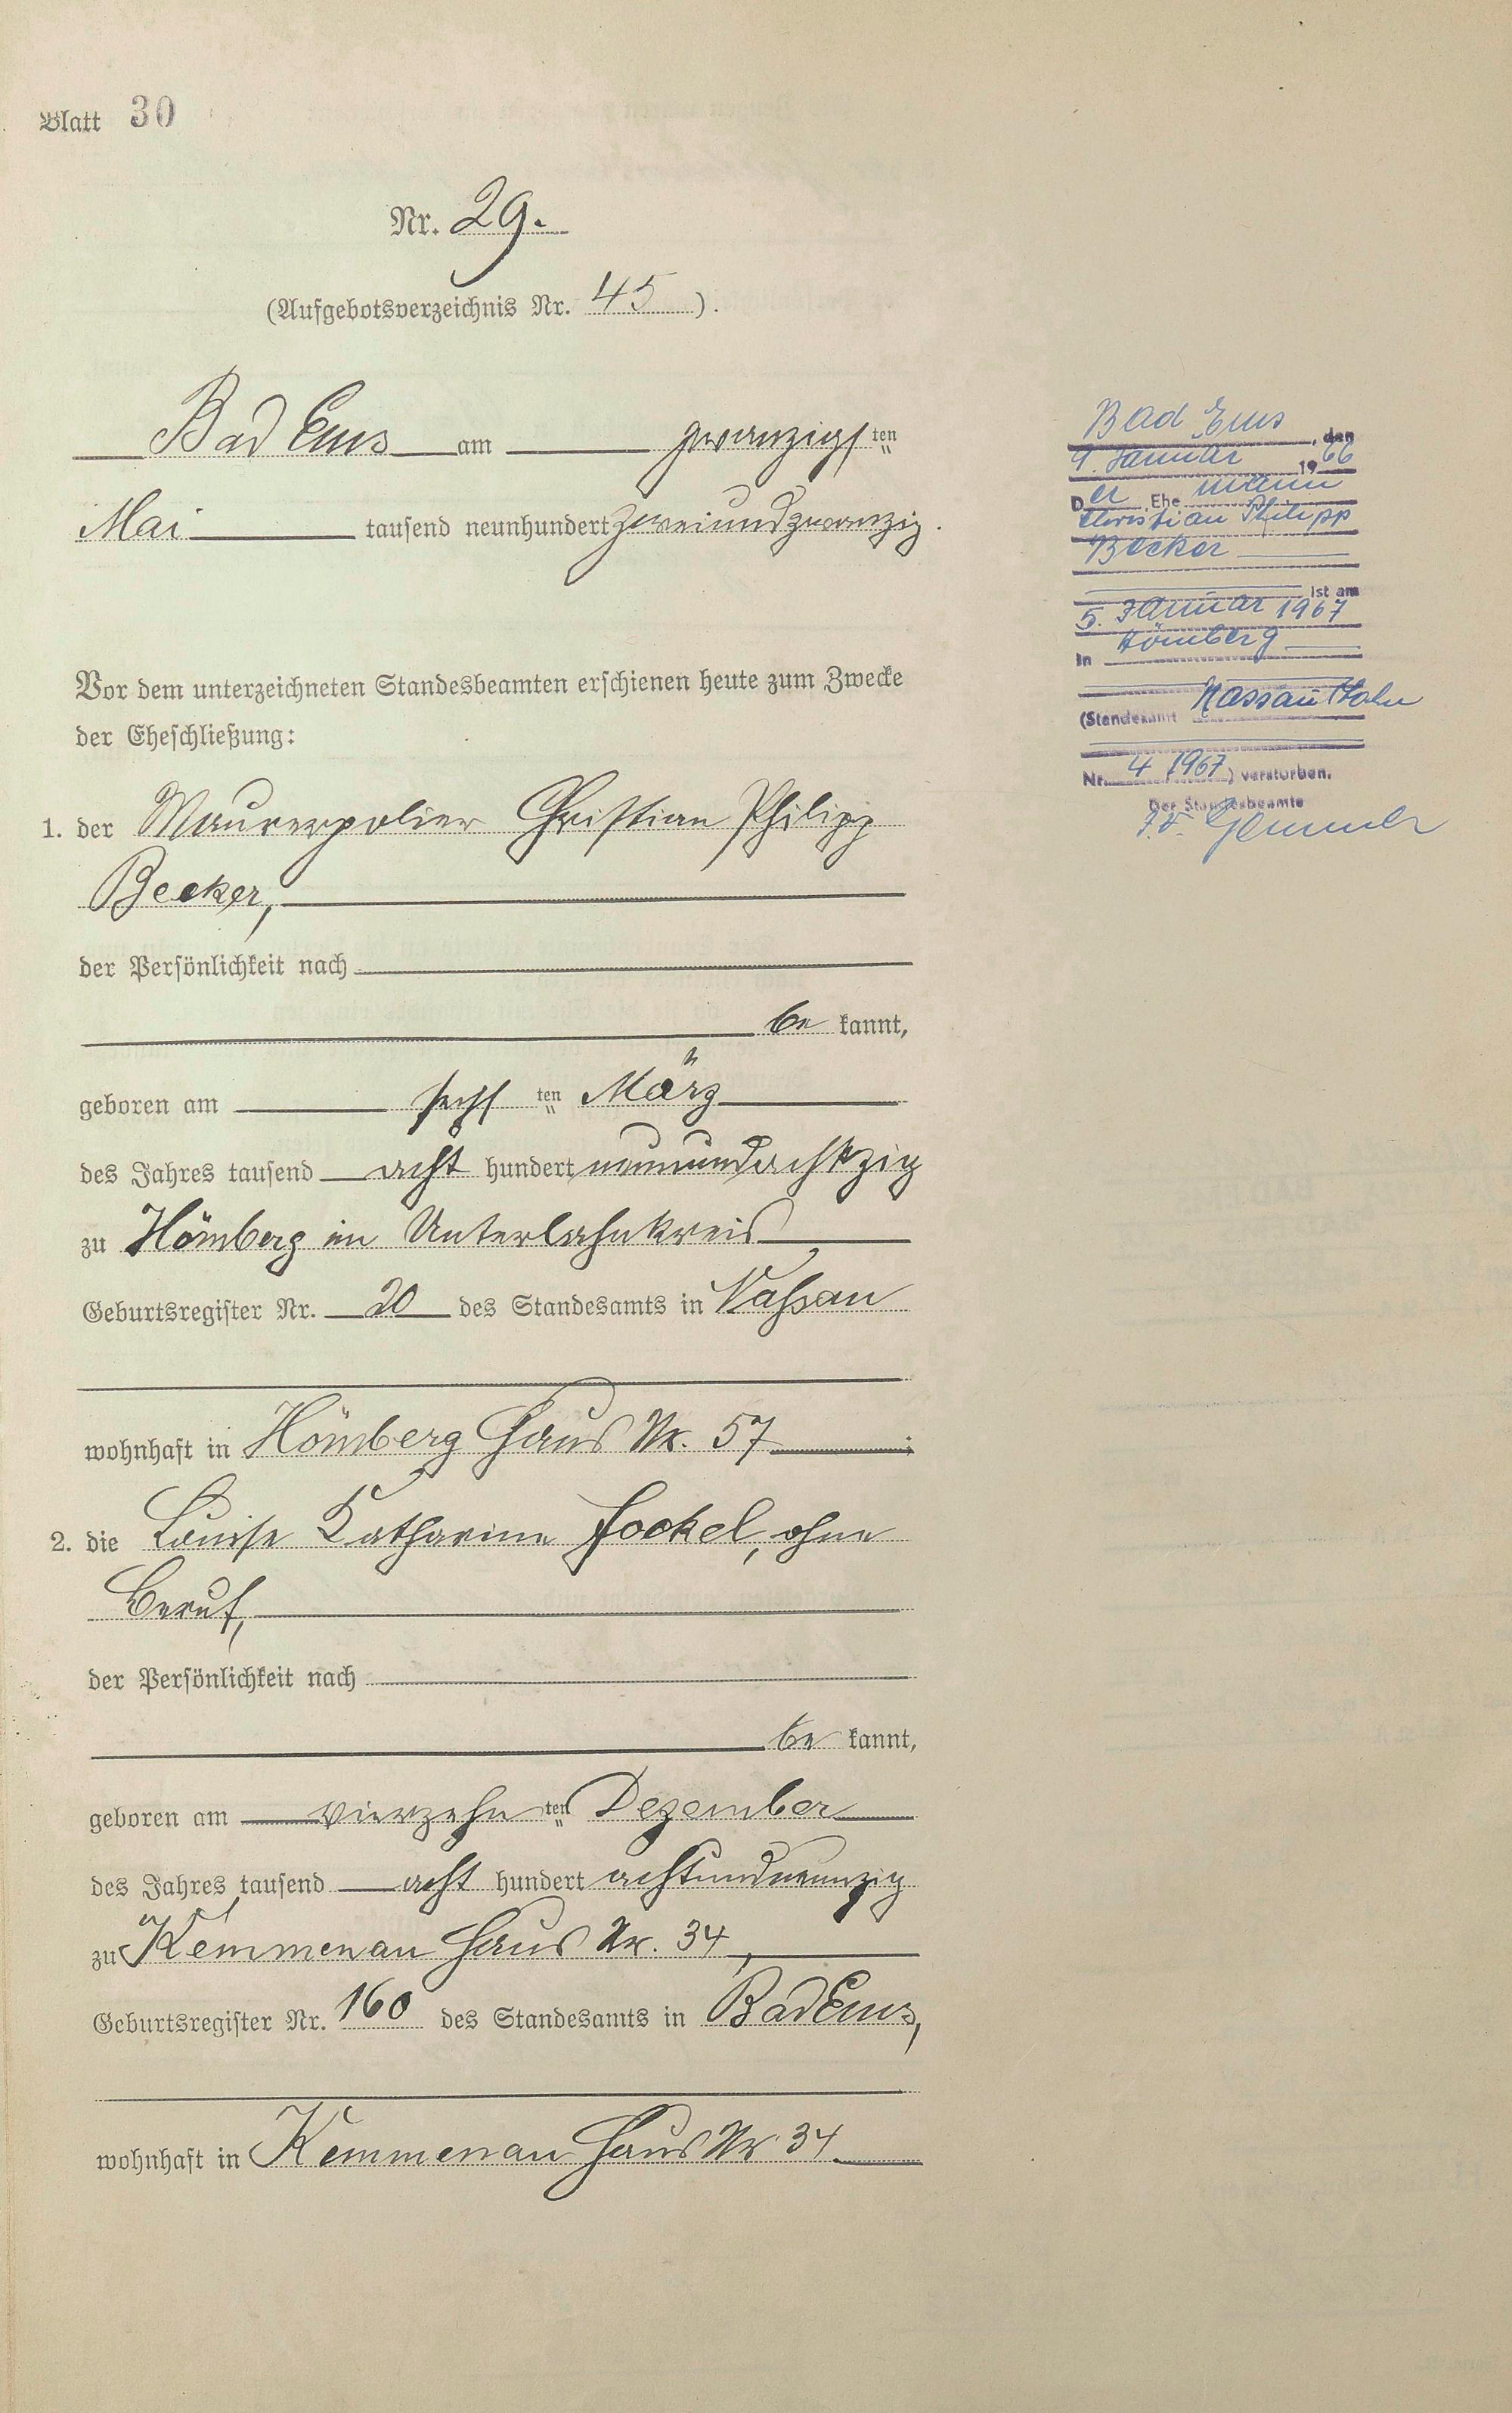 Blatt 30
Nr. 29.
(Aufgebotsverzeichnis Nr. 45).
Bad Ems am zwanzigsten
Mai tausend neunhundert zweiundzwanzig.
Vor dem unterzeichneten Standesbeamten erschienen heute zum Zwecke
der Eheschließung:
1. der Maurerpolier Christian Philipp
Becker,
der Persönlichkeit nach
be kannt,
geboren am sechsten März
des Jahres tausend acht hundert neunundachtzig
zu Hömberg im Unterlahnkreis
Geburtsregister Nr. 20 des Standesamts in Nassau
wohnhaft in Hömberg Haus Nr. 57;
2. die Louise Katharine Jockel, ohne
Beruf,
der Persönlichkeit nach
be kannt,
geboren am vierzehnten Dezember
des Jahres tausend acht hundert achtundneunzig
zu Kemmenau Haus Nr. 34,
Geburtsregister Nr. 160 des Standesamts in Bad Ems,
wohnhaft in Kemmenau Haus Nr 34
Bad Ems, den
9. Januar 1966
Der Ehemann
Christian Philipp
Becker
ist am
5. Januar 1967
in Hömberg
(Standesamt Nassau/Lahn
Nr. 4/1967) verstorben.
Der Standesbeamte
I.V.